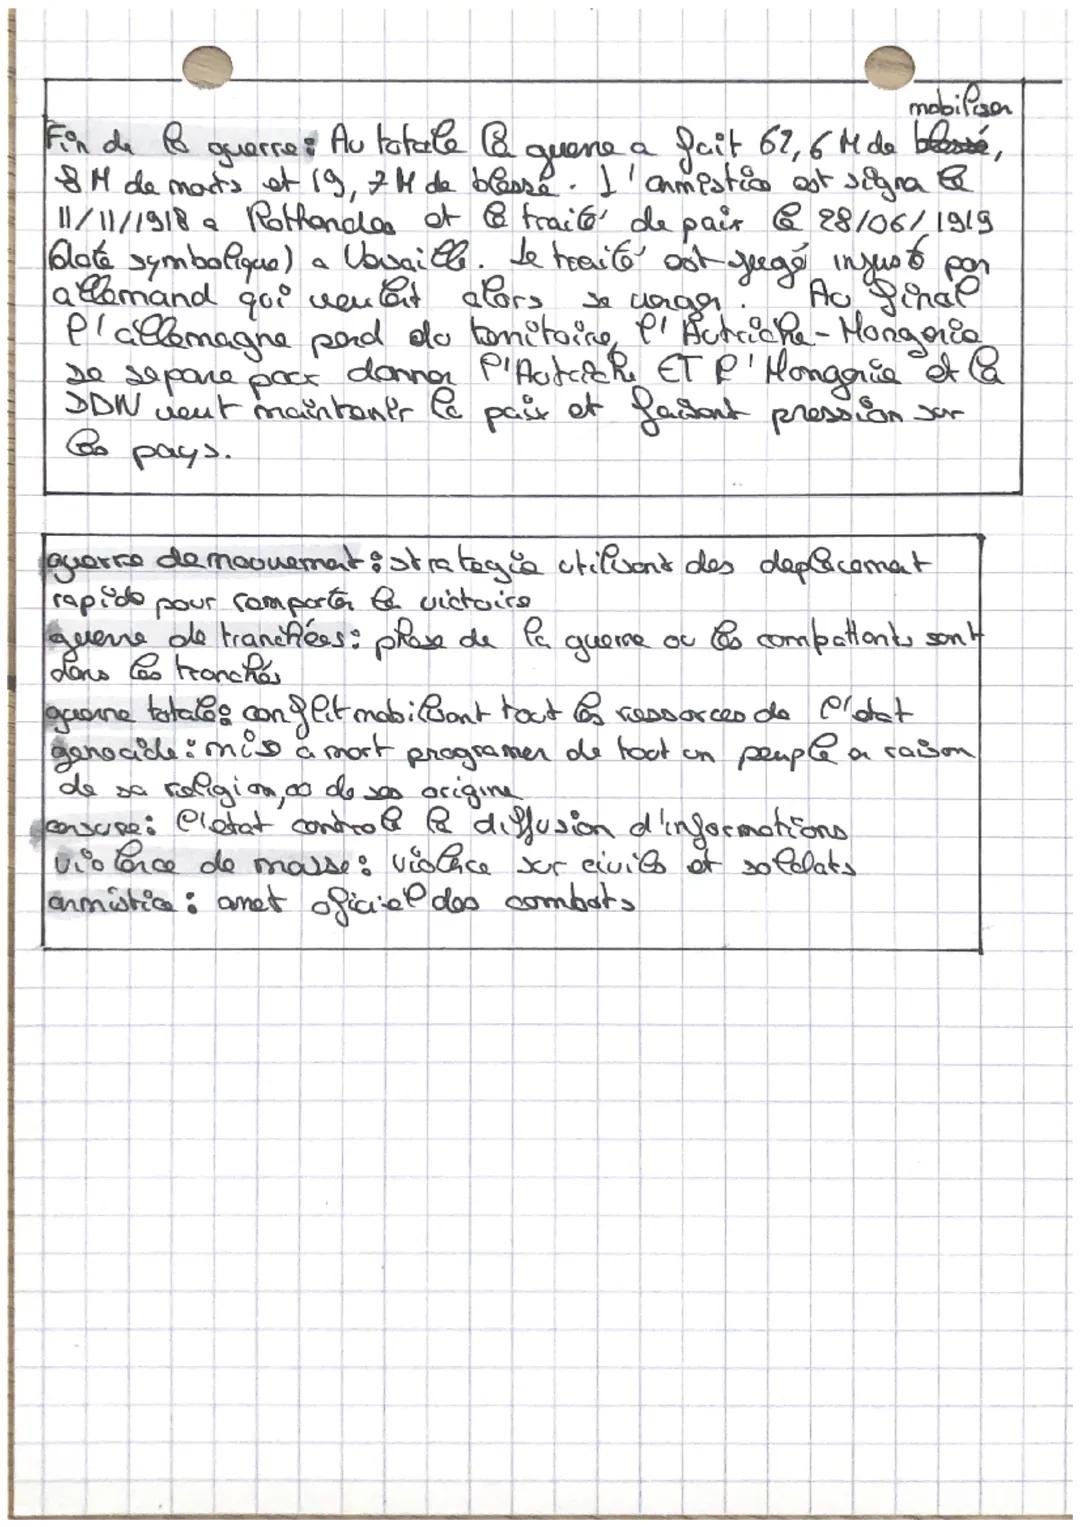 mobiliser
Fin de la guerre : Au totale la guerre a fait 62,6 M de blessé,
8 M de morts et 19,7 M de blessé. L'armistice est signa le
11/11/1918 a Rothondes et le traité de paix le 28/06/1919
(date symbolique) a Versaille. Le traité est jugé injuste par
allemand qui veulent alors se venger. Au final
l'allemagne perd du territoire, l'Autriche-Hongerie
se separe pour donner l'Autriche ET l'Hongrie et la
SDN veut maintenir la paix et faisant pression sur
les pays.
guerre de mouvement : strategie utilisant des deplacement
rapide pour remporter la victoire
guerre de tranchées : phase de la guerre ou les combattants sont
dans les tranchés
guerre totale : conflit mobilisant tout les ressources de l'etat
genocide : mise a mort programer de tout un peuple a raison
de sa religion, ou de ses origine
censure : l'etat controle la diffusion d'informations
violence de masse : violence sur civils et soldats
armistice : arret oficiel des combats